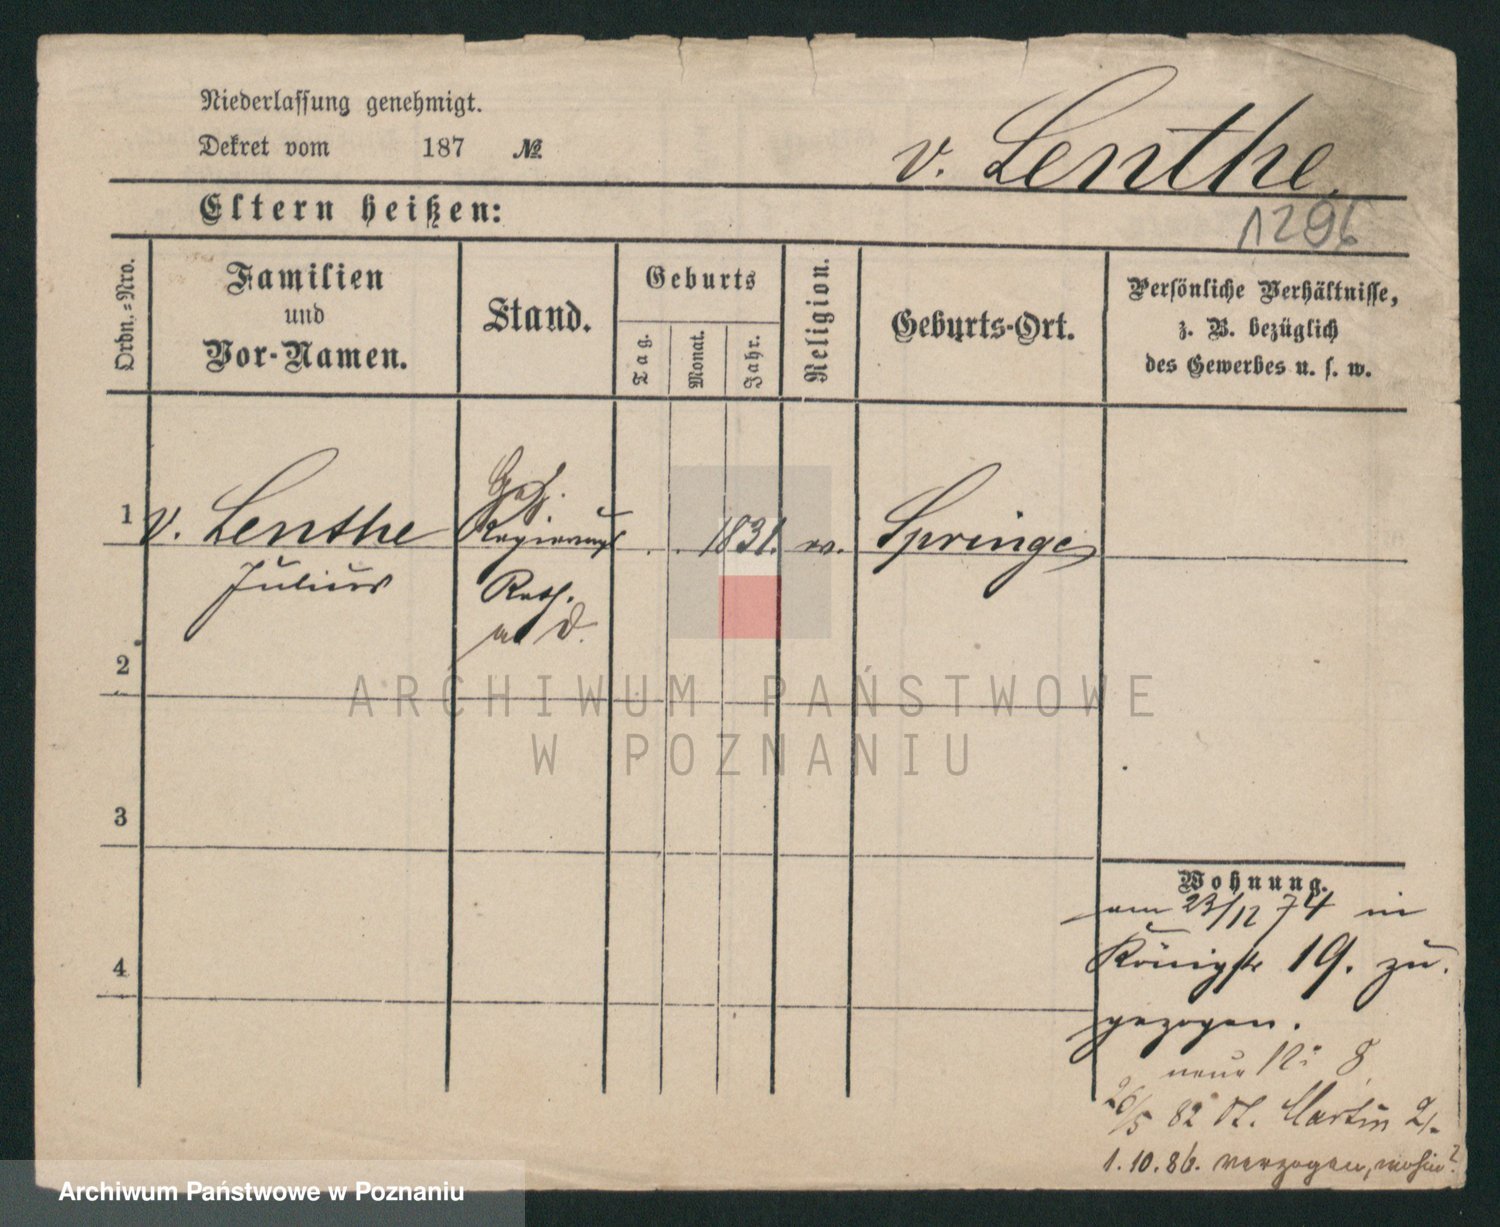 Niederlassung genehmigt.
Dekret vom 187 №
v. Lenthe.
1296
Eltern heißen:
Ordn.=Nro.
Familien
und
Vor-Namen.
Stand.
Geburts
Tag.
Monat.
Jahr.
Religion.
Geburts-Ort.
Persönliche Verhältnisse,
z. B. bezüglich
des Gewerbes u. s. w.
1 v. Lenthe Geh. Regierungs . . 1831. ev. Springe
Julius Rath.
a D.
2
ARCHIWUM PAŃSTWOWE
W POZNANIU
3
4
Wohnung.
am 23/12 74 in
Königstr 19. zu-
gezogen.
neue No 8
26/5 82 St. Martin
1.10.86. verzogen, wohin?
Archiwum Państwowe w Poznaniu